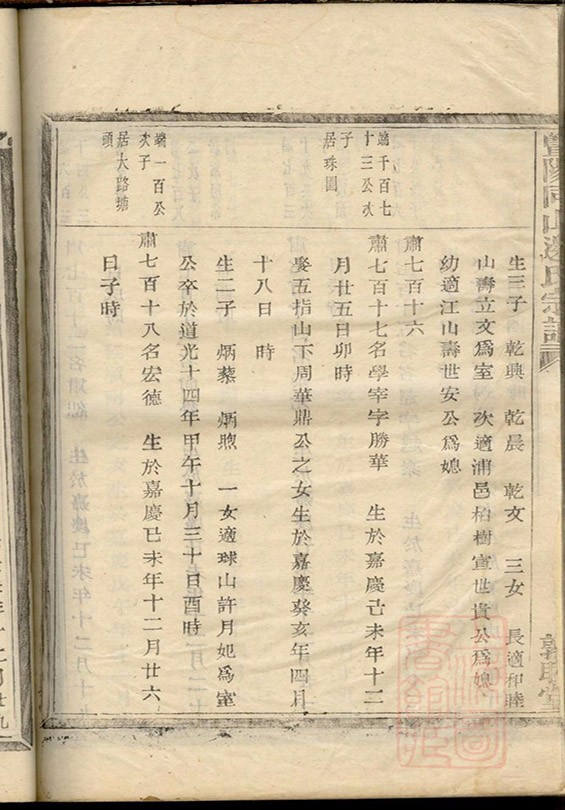 暨陽同山邊氏宗譜
生三子 乾興 乾晨 乾文 三女 長適和睦
山壽立文爲室 次適浦邑柏樹宣世貴公爲媳
幼適江山壽世安公爲媳
肅七百十六
端千百七
十三公次
子
居珠園
肅七百十七名學宰字勝華 生於嘉慶己未年十二
月廿五日卯時
娶五指山下周華鼎公之女生於嘉慶癸亥年四月
十八日 時
生二子 炳 炳煦 一女適球山許月 爲室
公卒於道光十四年甲午十月三十日酉時
端一百公
次子
居大路塘
頭
肅七百十八名宏德 生於嘉慶己未年十二月廿六
日子時